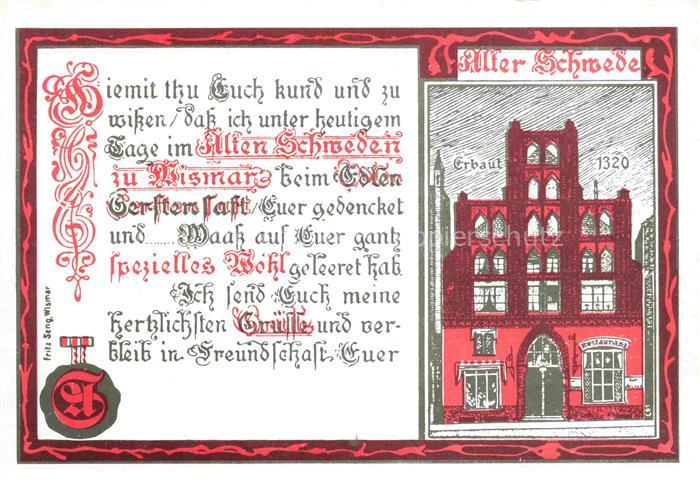 Hiemit thu Euch kund und zu
wißen/daß ich unter heutigem
Tage im Alten Schweden
zu Wismar beim Edlen
Gerstensaft/Euer gedencket
und ..... Maaß auf Euer gantz
spezielles Wohl geleeret hab
Ich send Euch meine
hertzlichsten Grüsse und ver-
bleib in Freundschaft Euer
Fritz Seng, Wismar
A
Alter Schwede
Erbaut 1320
Restaurant